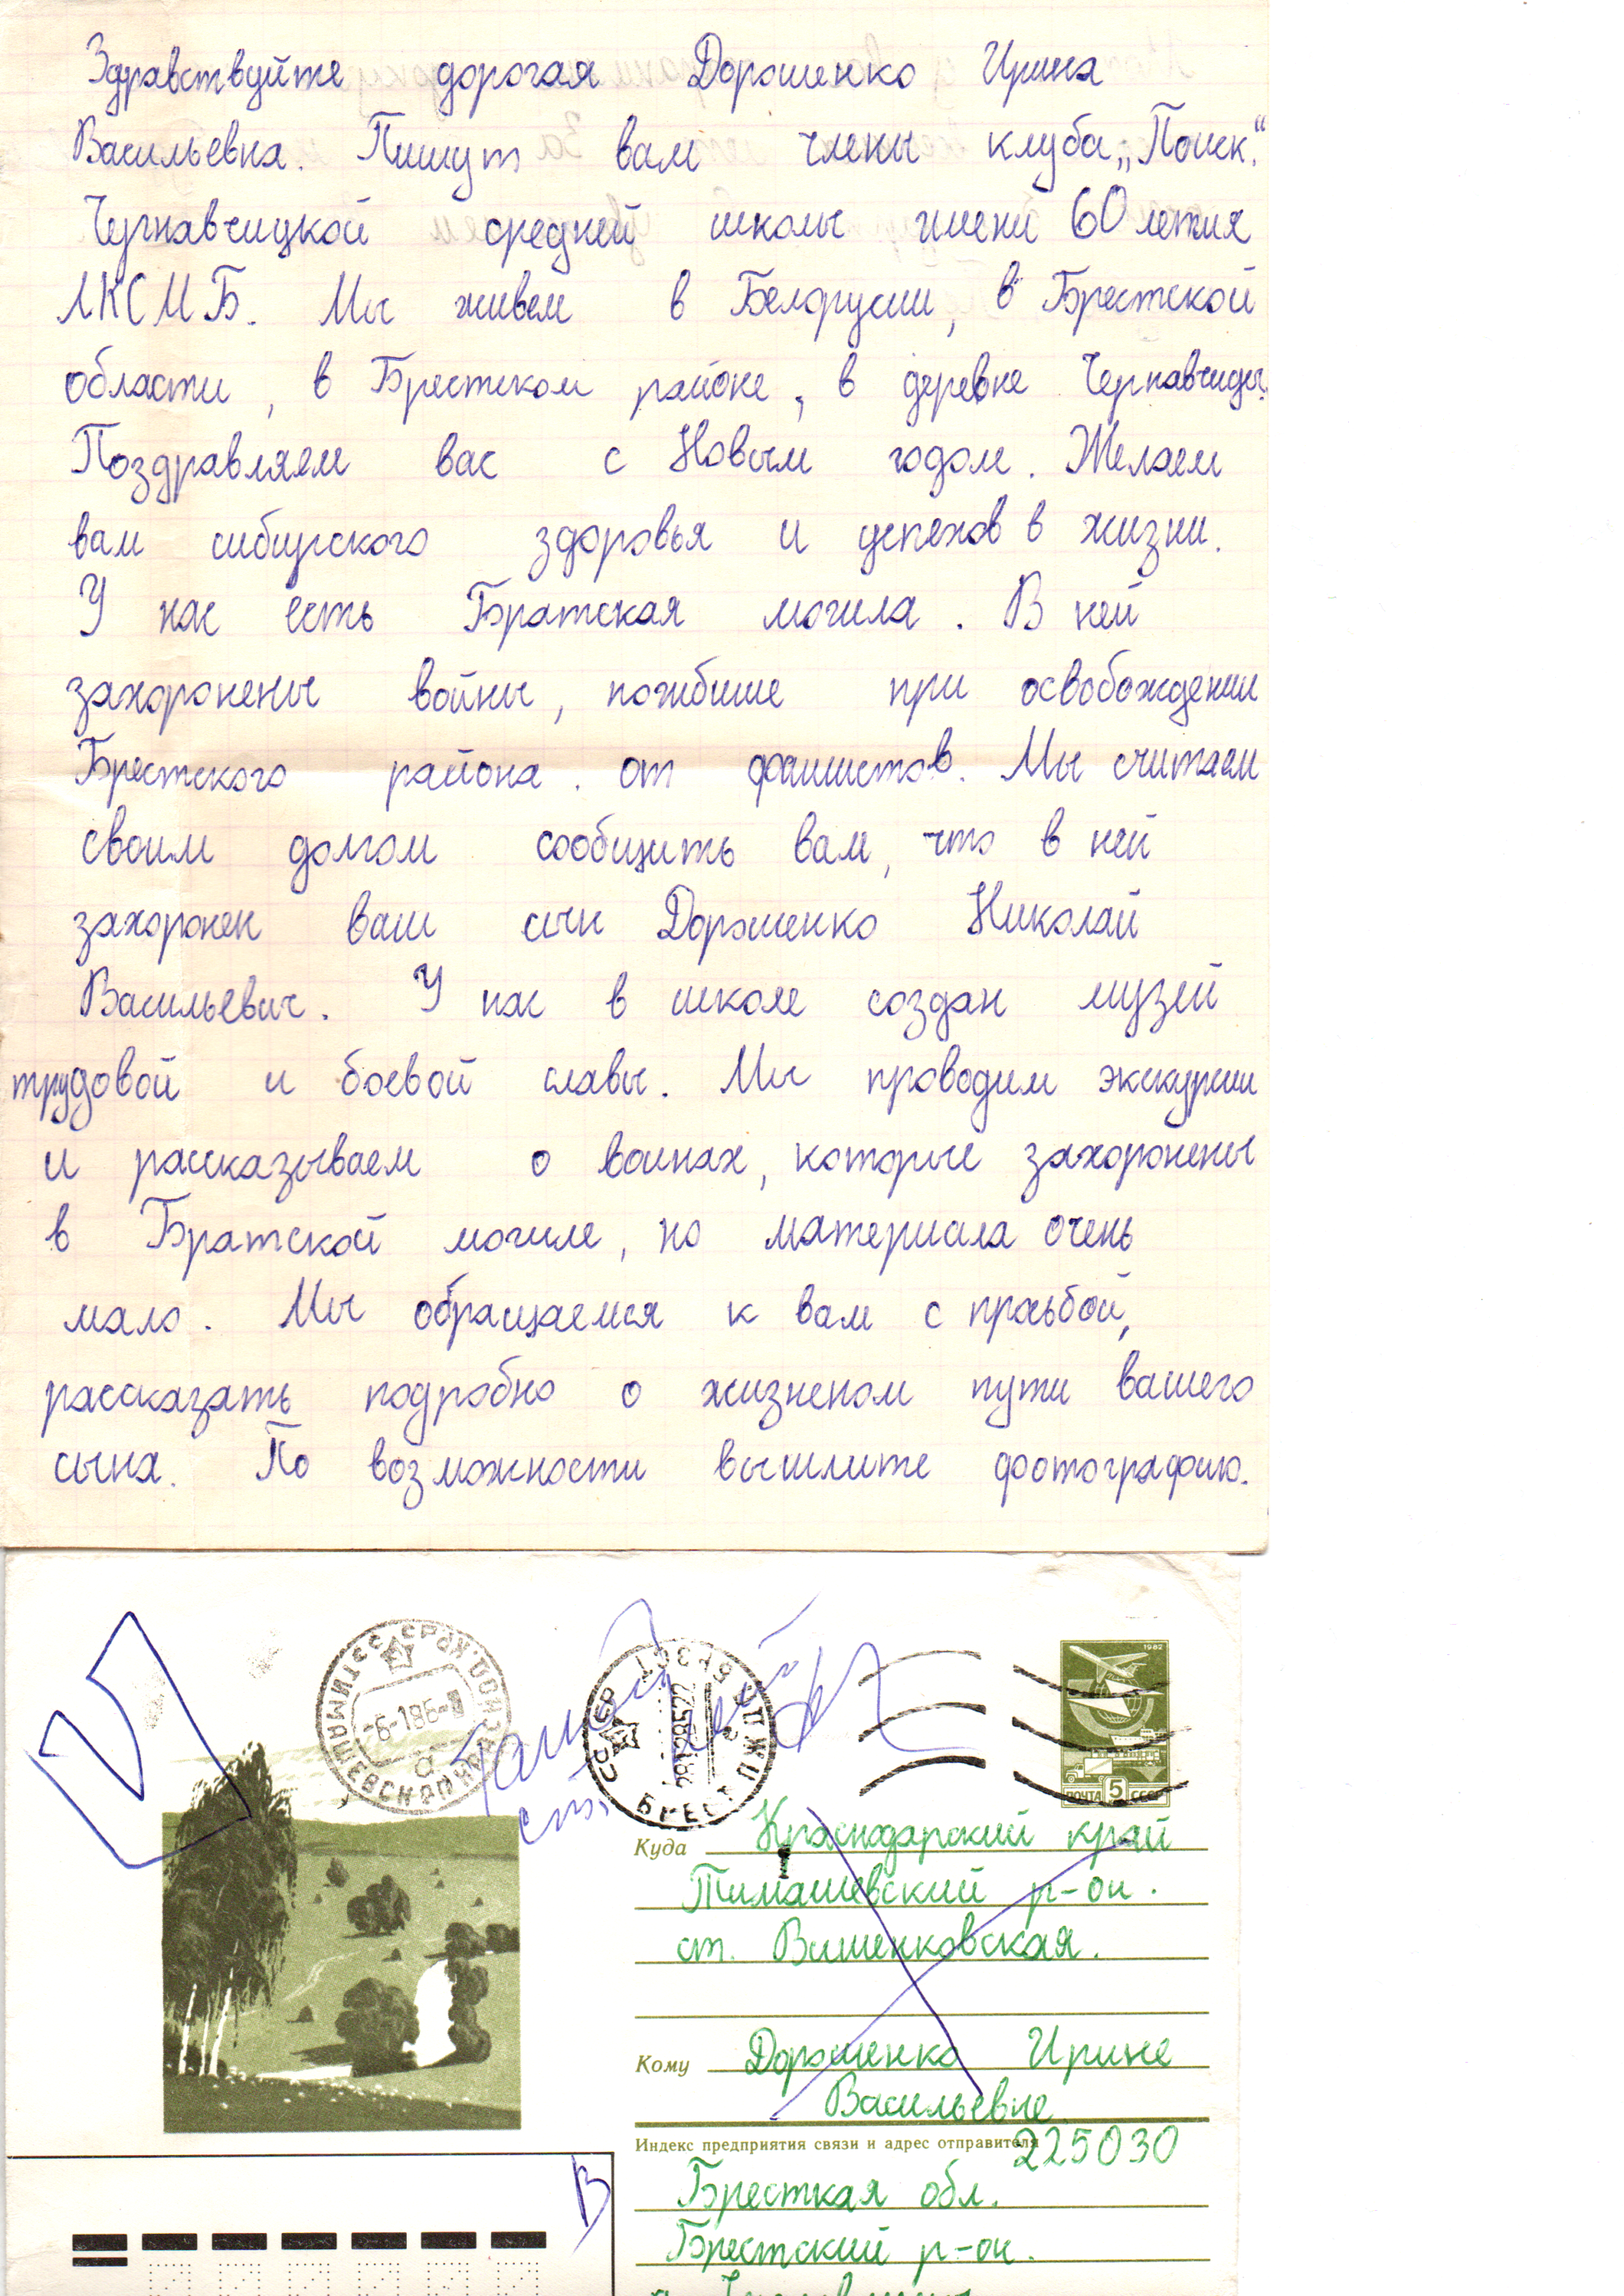 Здравствуйте дорогая Дорошенко Ирина
Васильевна. Пишут вам члены клуба „Поиск“.
Чернавчицкой средней школы имени 60 летия
ЛКСМБ. Мы живем в Белорусии, в Брестской
области, в Брестском районе, в деревне Чернавчицы.
Поздравляем вас с Новым годом. Желаем
вам сибирского здоровья и успехов в жизни.
У нас есть Братская могила. В ней
захоронены войны, погибшие при освобождении
Брестского района. от фашистов. Мы считаем
своим долгом сообщить вам, что в ней
захоронен ваш сын Дорошенко Николай
Васильевич. У нас в школе создан музей
трудовой и боевой славы. Мы проводим экскурсии
и рассказываем о воинах, которые захоронены
в Братской могиле, но материала очень
мало. Мы обращаемся к вам с просьбой,
рассказать подробно о жизненом пути вашего
сына. По возможности вышлите фотографию.
1982
ПОЧТА 5 СССР
СССР БРЕСТ
Куда Краснодарский край
Тимашевский р-он.
ст. Вишенковская.
Кому Дорошенко Ирине
Васильевне
Индекс предприятия связи и адрес отправителя
225030
Бресткая обл.
Брестский р-он.
В